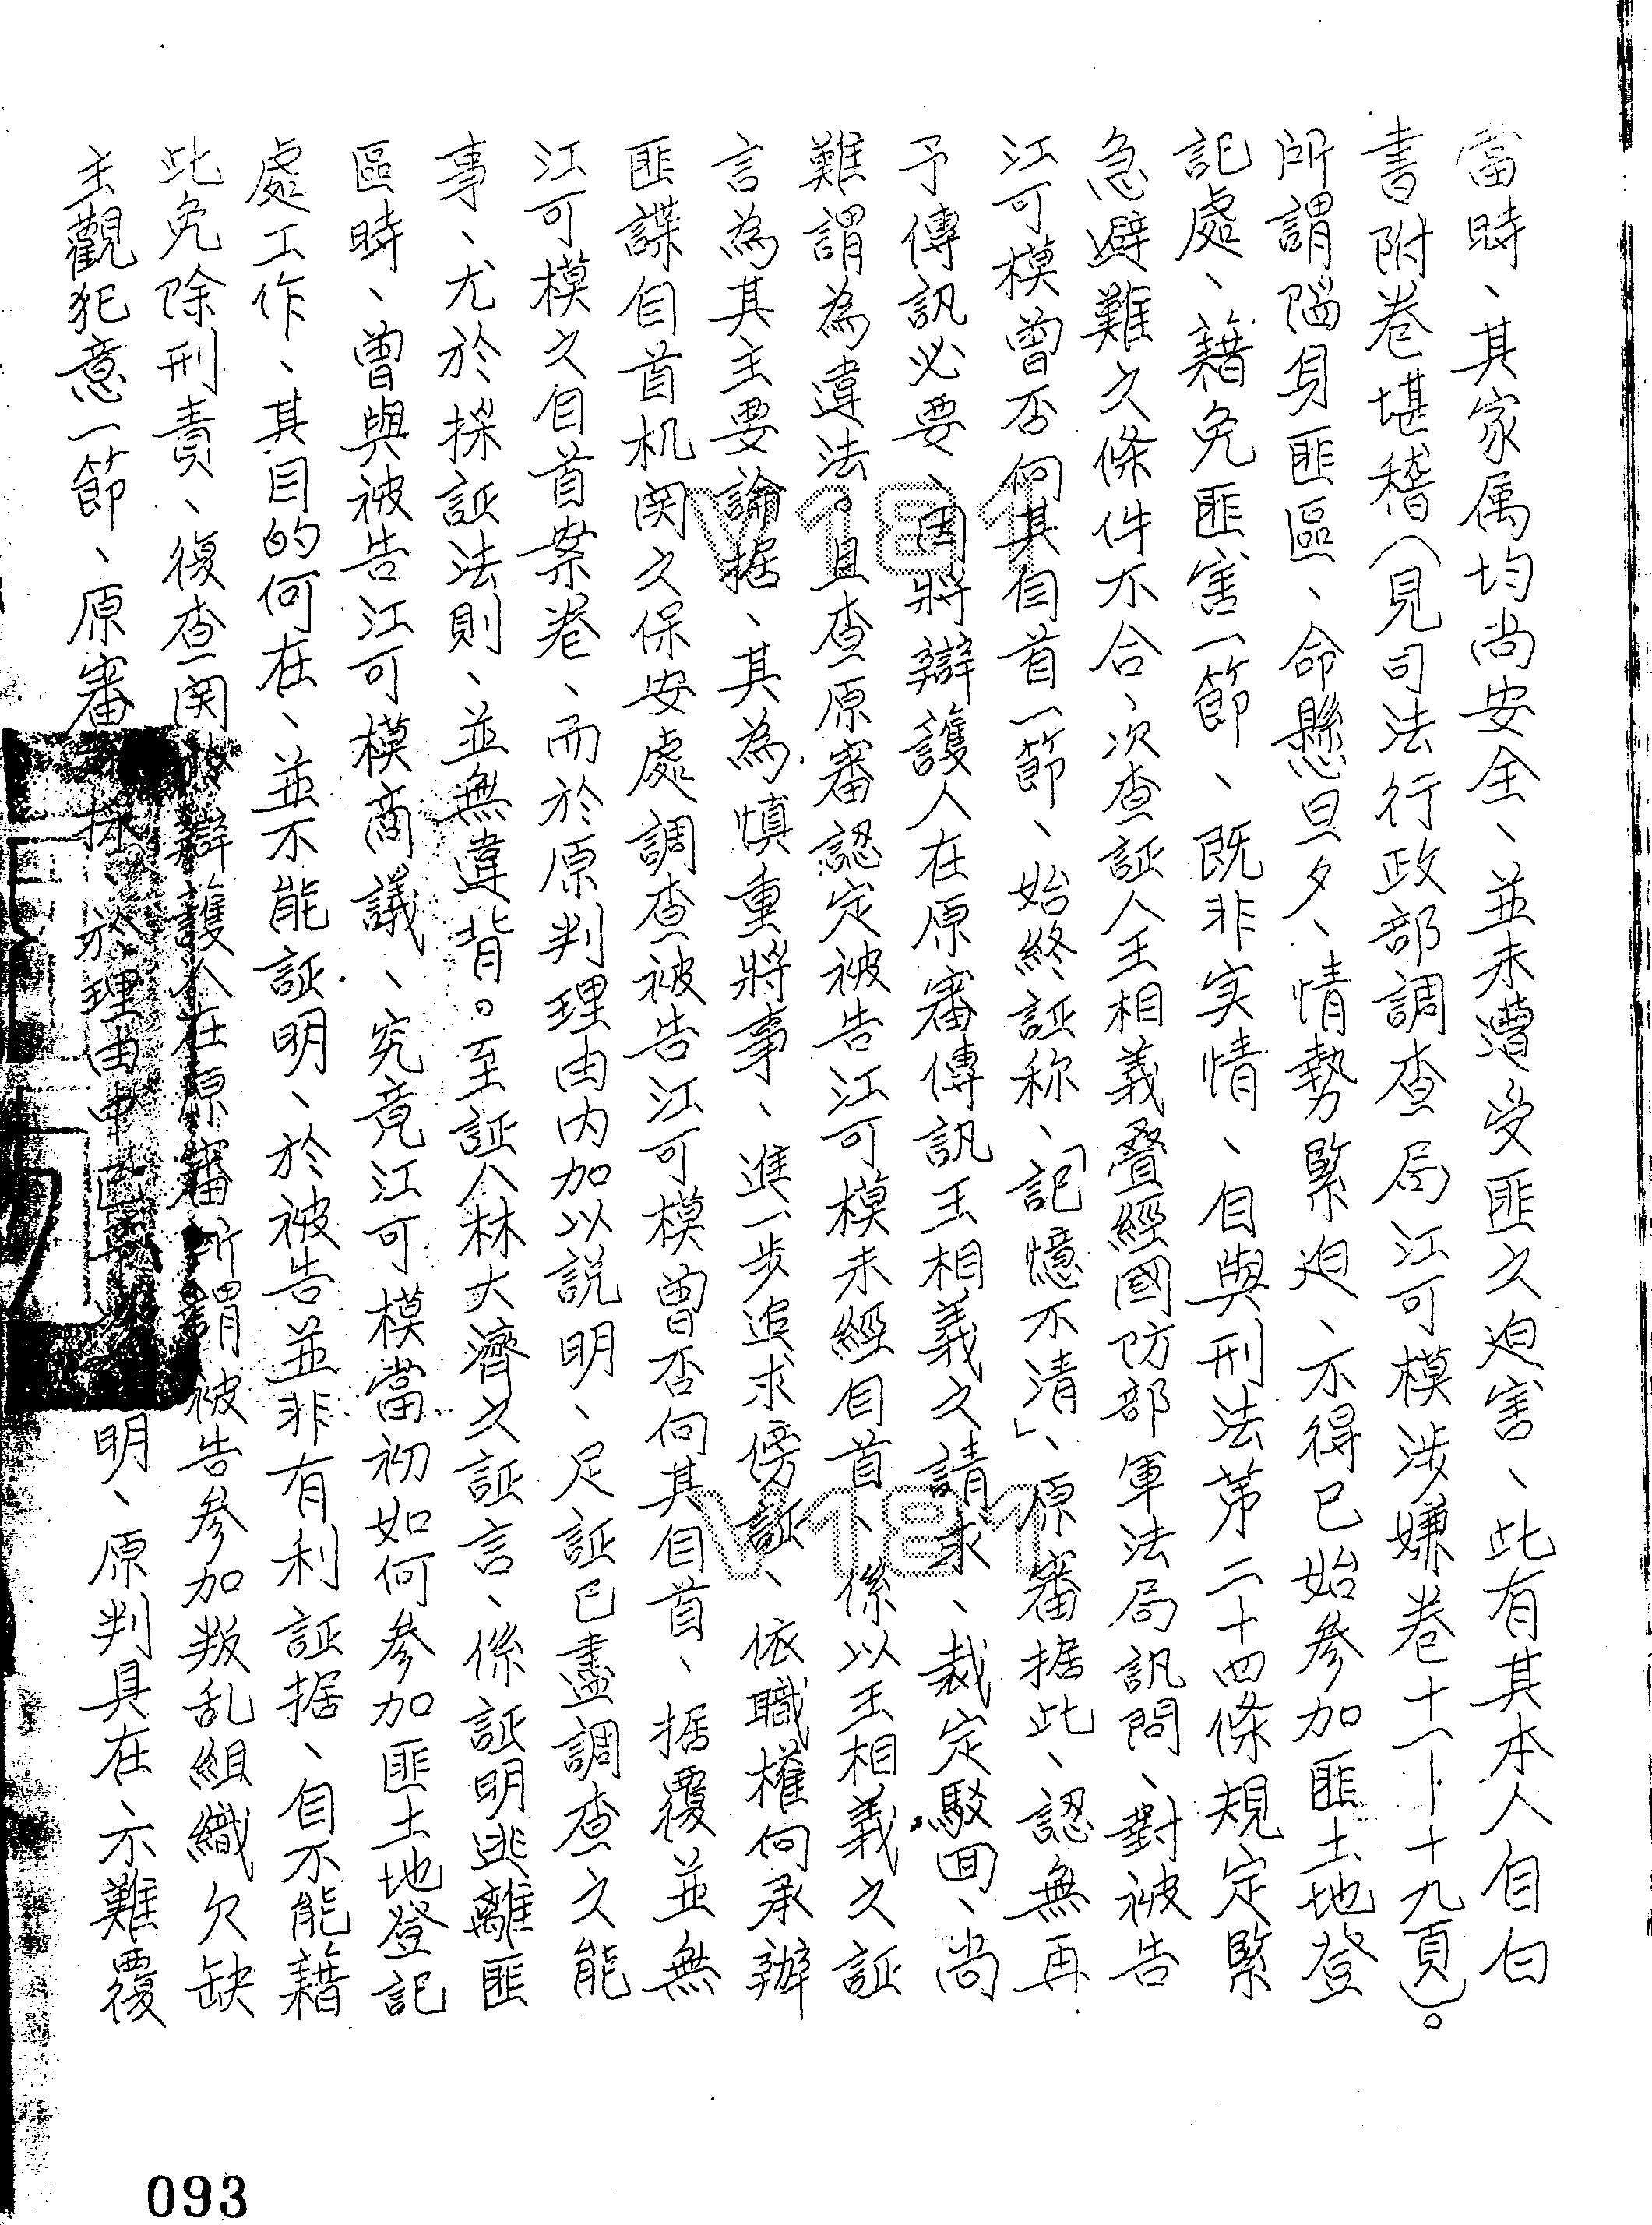 當時、其家属均尚安全、並未遭受匪之迫害、此有其本人自白
書附卷堪稽（見司法行政部調查局江可模涉嫌卷十一—十九頁）。
所謂陷身匪區、命懸旦夕、情勢緊迫、不得已始參加匪土地登
記處、藉免匪害一節、既非实情、自與刑法苐二十四條規定緊
急避難之條件不合、次查証人王相義叠經國防部軍法局訊問、對被告
江可模曾否向其自首一節、始終証称、「記憶不清」、原審据此、認無再
予傳訊必要、因將辯護人在原審傳訊王相義之請求、裁定駁回、尚
難謂為違法。且查原審認定被告江可模未經自首、係以王相義之証
言為其主要論据、其為慎重將事、進一步追求傍証、依職權向承辦
匪諜自首机関之保安處調查被告江可模曾否向其自首、据覆並無
江可模之自首案卷、而於原判理由内加以説明、足証已盡調查之能
事、尤於採証法則、並無違背。至証人林大濟之証言、係証明逃離匪
區時、曾與被告江可模商議、究竟江可模當初如何參加匪土地登記
處工作、其目的何在、並不能証明、於被告並非有利証据、自不能藉
此免除刑責、復查関於辯護人在原審所謂被告參加叛乱組織欠缺
主觀犯意一節、原審採於理由中明、原判具在、不難覆
V181
V181
093